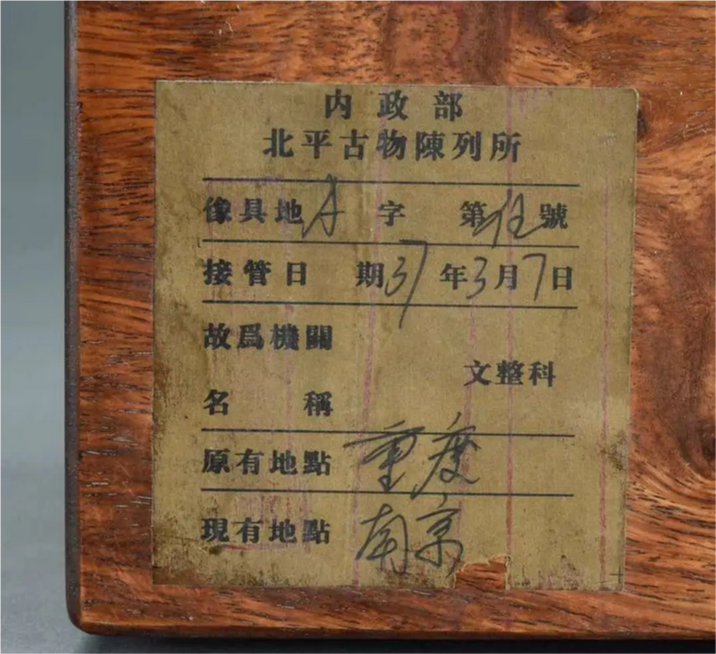 內政部
北平古物陳列所
傢具地 字 第 號
接管日 期37年3月7日
故爲機關
文整科
名 稱
原有地點 重庆
現有地點 南京